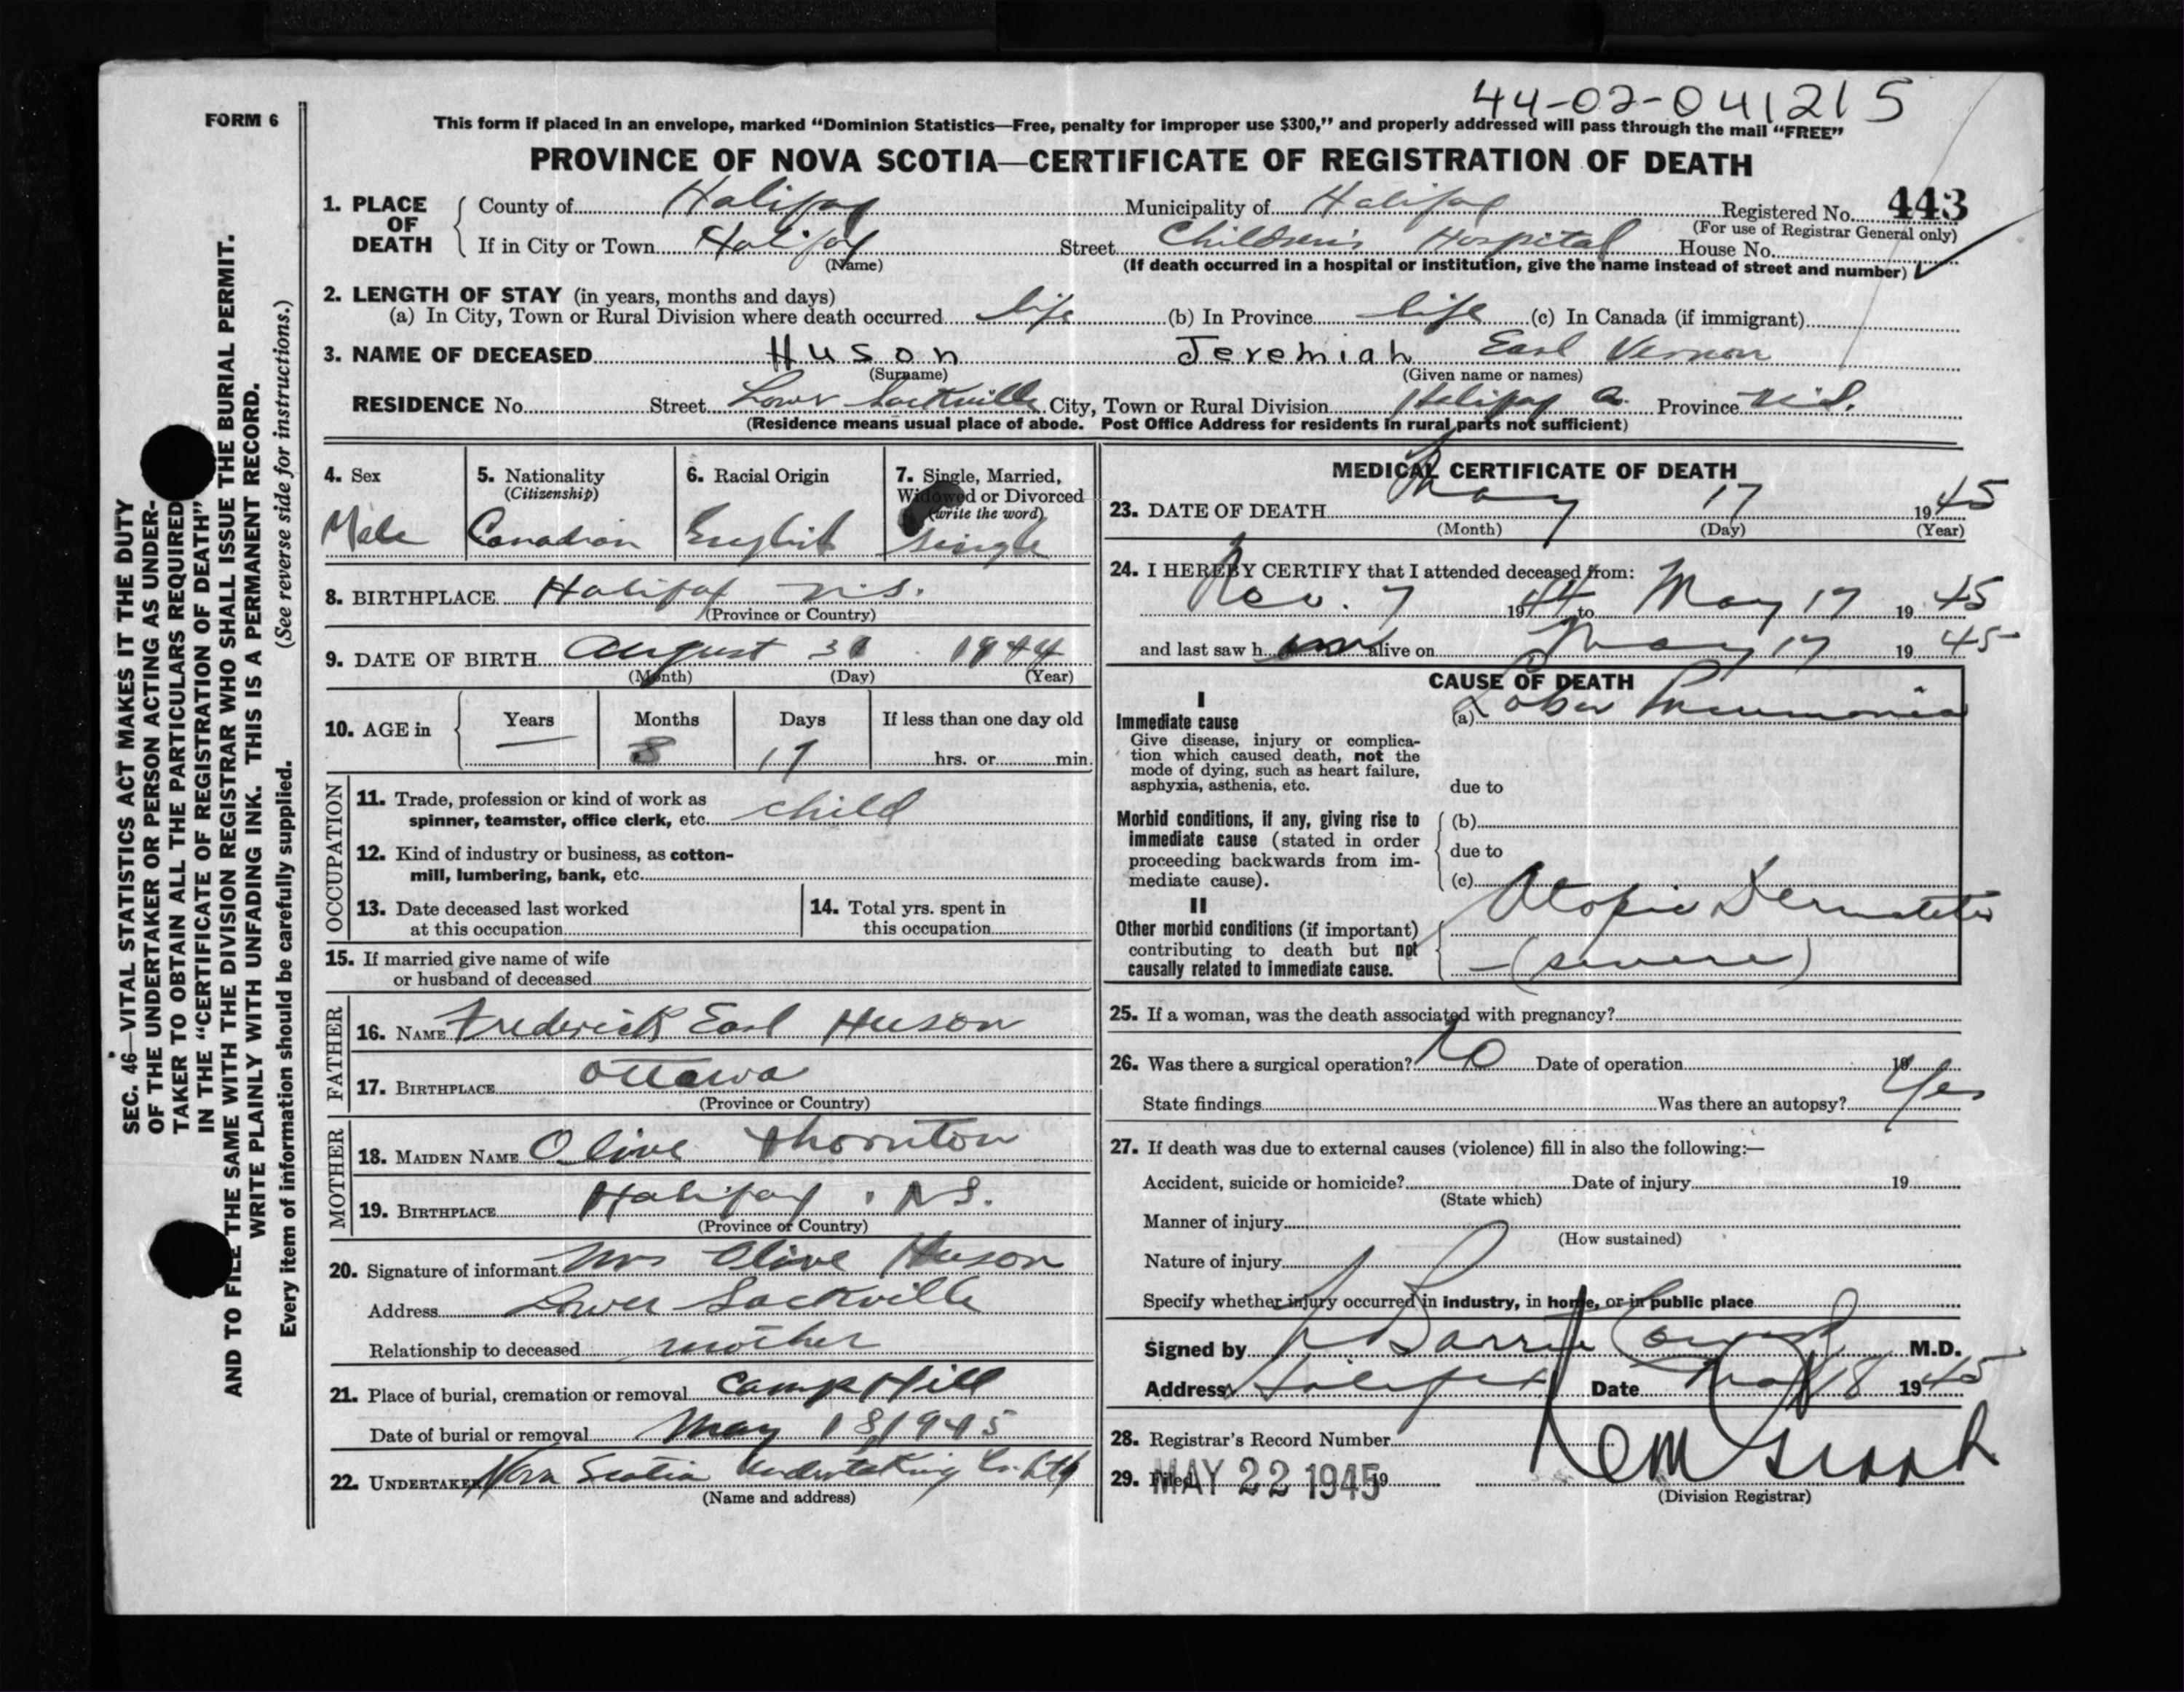 44-02-041215
FORM 6
This form if placed in an envelope, marked "Dominion Statistics—Free, penalty for improper use $300," and properly addressed will pass through the mail "FREE"
PROVINCE OF NOVA SCOTIA—CERTIFICATE OF REGISTRATION OF DEATH
1. PLACE OF DEATH County of Halifax Municipality of Halifax Registered No. 443
(For use of Registrar General only)
If in City or Town Halifax Street Children's Hospital House No.
(Name) (If death occurred in a hospital or institution, give the name instead of street and number)
2. LENGTH OF STAY (in years, months and days)
(a) In City, Town or Rural Division where death occurred life (b) In Province life (c) In Canada (if immigrant)
3. NAME OF DECEASED Huson Jeremiah Earl Vernon
(Surname) (Given name or names)
RESIDENCE No. Street Lower Sackville City, Town or Rural Division Halifax Co. Province N.S.
(Residence means usual place of abode. Post Office Address for residents in rural parts not sufficient)
4. Sex Male
5. Nationality (Citizenship) Canadian
6. Racial Origin English
7. Single, Married, Widowed or Divorced (write the word) Single
8. BIRTHPLACE Halifax N.S.
(Province or Country)
9. DATE OF BIRTH August 31 1944
(Month) (Day) (Year)
10. AGE in Years — Months 8 Days 17 If less than one day old
hrs. or min.
OCCUPATION
11. Trade, profession or kind of work as
spinner, teamster, office clerk, etc. child
12. Kind of industry or business, as cotton-
mill, lumbering, bank, etc.
13. Date deceased last worked
at this occupation
14. Total yrs. spent in
this occupation
15. If married give name of wife
or husband of deceased
FATHER
16. NAME Frederick Earl Huson
17. BIRTHPLACE Ottawa
(Province or Country)
MOTHER
18. MAIDEN NAME Olive Thornton
19. BIRTHPLACE Halifax . N.S.
(Province or Country)
20. Signature of informant Mrs Olive Huson
Address Lower Sackville
Relationship to deceased mother
21. Place of burial, cremation or removal Camp Hill
Date of burial or removal May 18 1945
22. UNDERTAKER Nova Scotia Undertaking Co. Ltd
(Name and address)
MEDICAL CERTIFICATE OF DEATH
23. DATE OF DEATH May 17 1945
(Month) (Day) (Year)
24. I HEREBY CERTIFY that I attended deceased from:
Nov. 7 1944 to May 17 1945
and last saw h im alive on May 17 1945
CAUSE OF DEATH
I
Immediate cause (a) Lobar Pneumonia
Give disease, injury or complica-
tion which caused death, not the
mode of dying, such as heart failure,
asphyxia, asthenia, etc. due to
Morbid conditions, if any, giving rise to (b)
immediate cause (stated in order
proceeding backwards from im- due to
mediate cause). (c)
II Atopic Dermatitis
Other morbid conditions (if important)
contributing to death but not
causally related to immediate cause. – (severe)
25. If a woman, was the death associated with pregnancy?
26. Was there a surgical operation? No Date of operation 19
State findings Was there an autopsy? Yes
27. If death was due to external causes (violence) fill in also the following:—
Accident, suicide or homicide? Date of injury 19
(State which)
Manner of injury
(How sustained)
Nature of injury
Specify whether injury occurred in industry, in home, or in public place
Signed by Barrie M.D.
Address Halifax Date May 18 1945
28. Registrar's Record Number
29. Filed MAY 22 1945 19
(Division Registrar)
SEC. 46—VITAL STATISTICS ACT MAKES IT THE DUTY
OF THE UNDERTAKER OR PERSON ACTING AS UNDER-
TAKER TO OBTAIN ALL THE PARTICULARS REQUIRED
IN THE "CERTIFICATE OF REGISTRATION OF DEATH"
AND TO FILE THE SAME WITH THE DIVISION REGISTRAR WHO SHALL ISSUE THE BURIAL PERMIT.
WRITE PLAINLY WITH UNFADING INK. THIS IS A PERMANENT RECORD.
Every item of information should be carefully supplied. (See reverse side for instructions.)